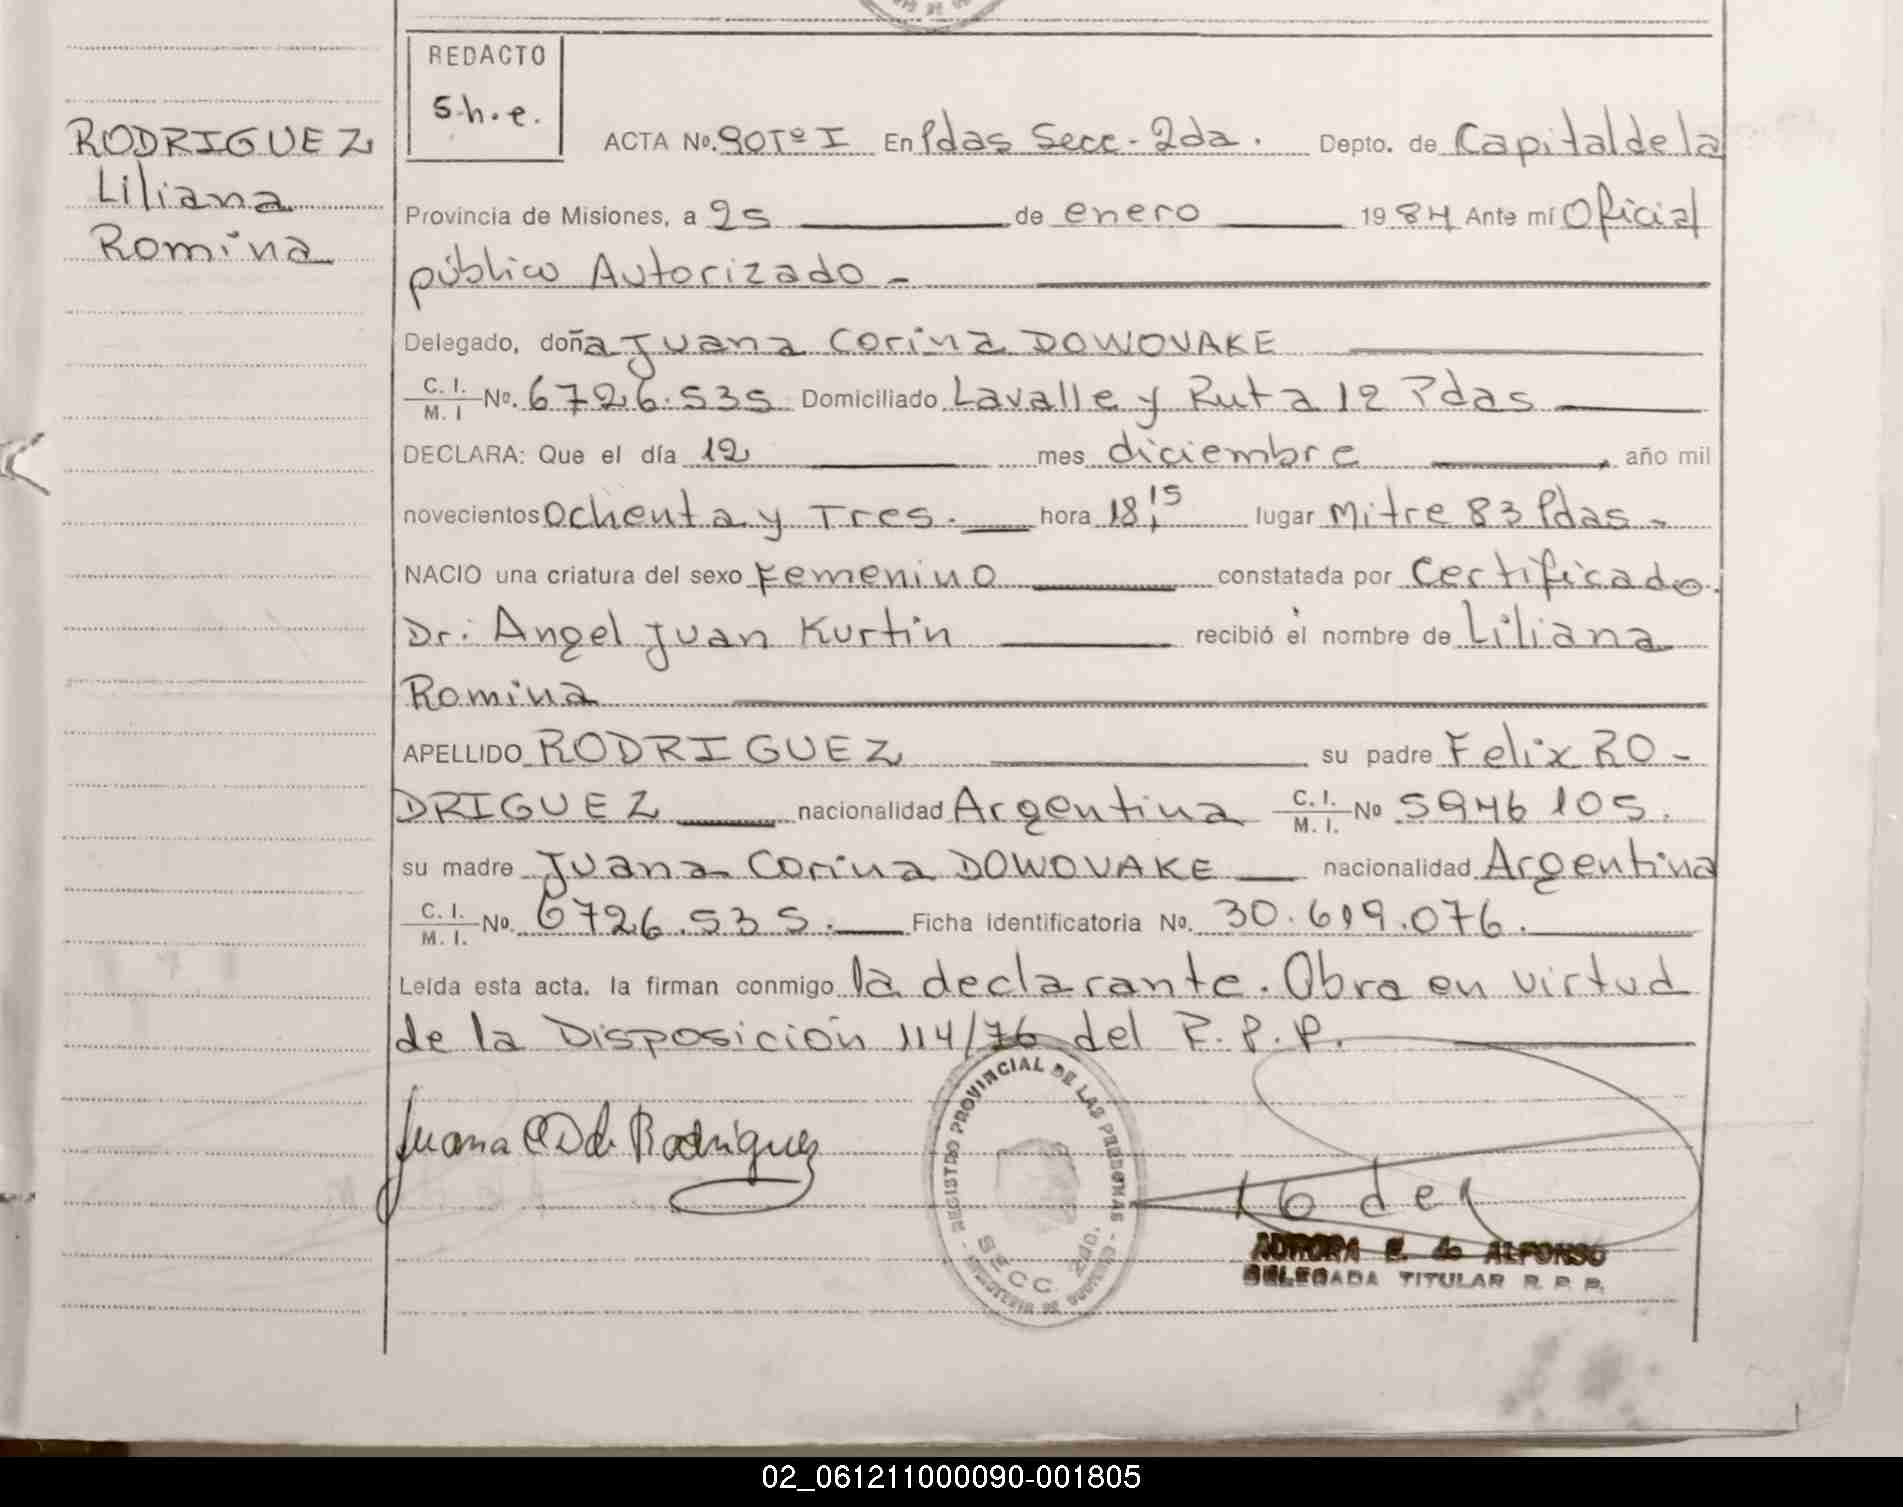 REDACTO
S.h.e.
RODRIGUEZ
Liliana
Romina
ACTA No. 90 Tº I En Pdas Secc - 2da. Depto. de Capital de la
Provincia de Misiones, a 25 de enero 1984 Ante mí Oficial
público Autorizado -
Delegado, doña Juana Corina DOWOVAKE
C. I. / M. I No. 6726.535 Domiciliado Lavalle y Ruta 12 Pdas
DECLARA: Que el día 12 mes diciembre, año mil
novecientos Ochenta y Tres. hora 18,15 lugar Mitre 83 Pdas -
NACIO una criatura del sexo Femenino constatada por Certificado.
Dr. Angel Juan Kurtin recibió el nombre de Liliana
Romina
APELLIDO RODRIGUEZ su padre Felix RO-
DRIGUEZ nacionalidad Argentina C. I. / M. I. No 5946105.
su madre Juana Corina DOWOVAKE nacionalidad Argentina
C. I. / M. I. No. 6726.535. Ficha identificatoria No. 30.619.076.
Leída esta acta. la firman conmigo la declarante. Obra en virtud
de la Disposición 114/76 del R.P.P.
Juana C D de Rodriguez
REGISTRO PROVINCIAL DE LAS PERSONAS
SECC. 2da.
MINISTERIO DE GOBIERNO
AURORA E. de ALFONSO
DELEGADA TITULAR R. P. P.
02_061211000090-001805